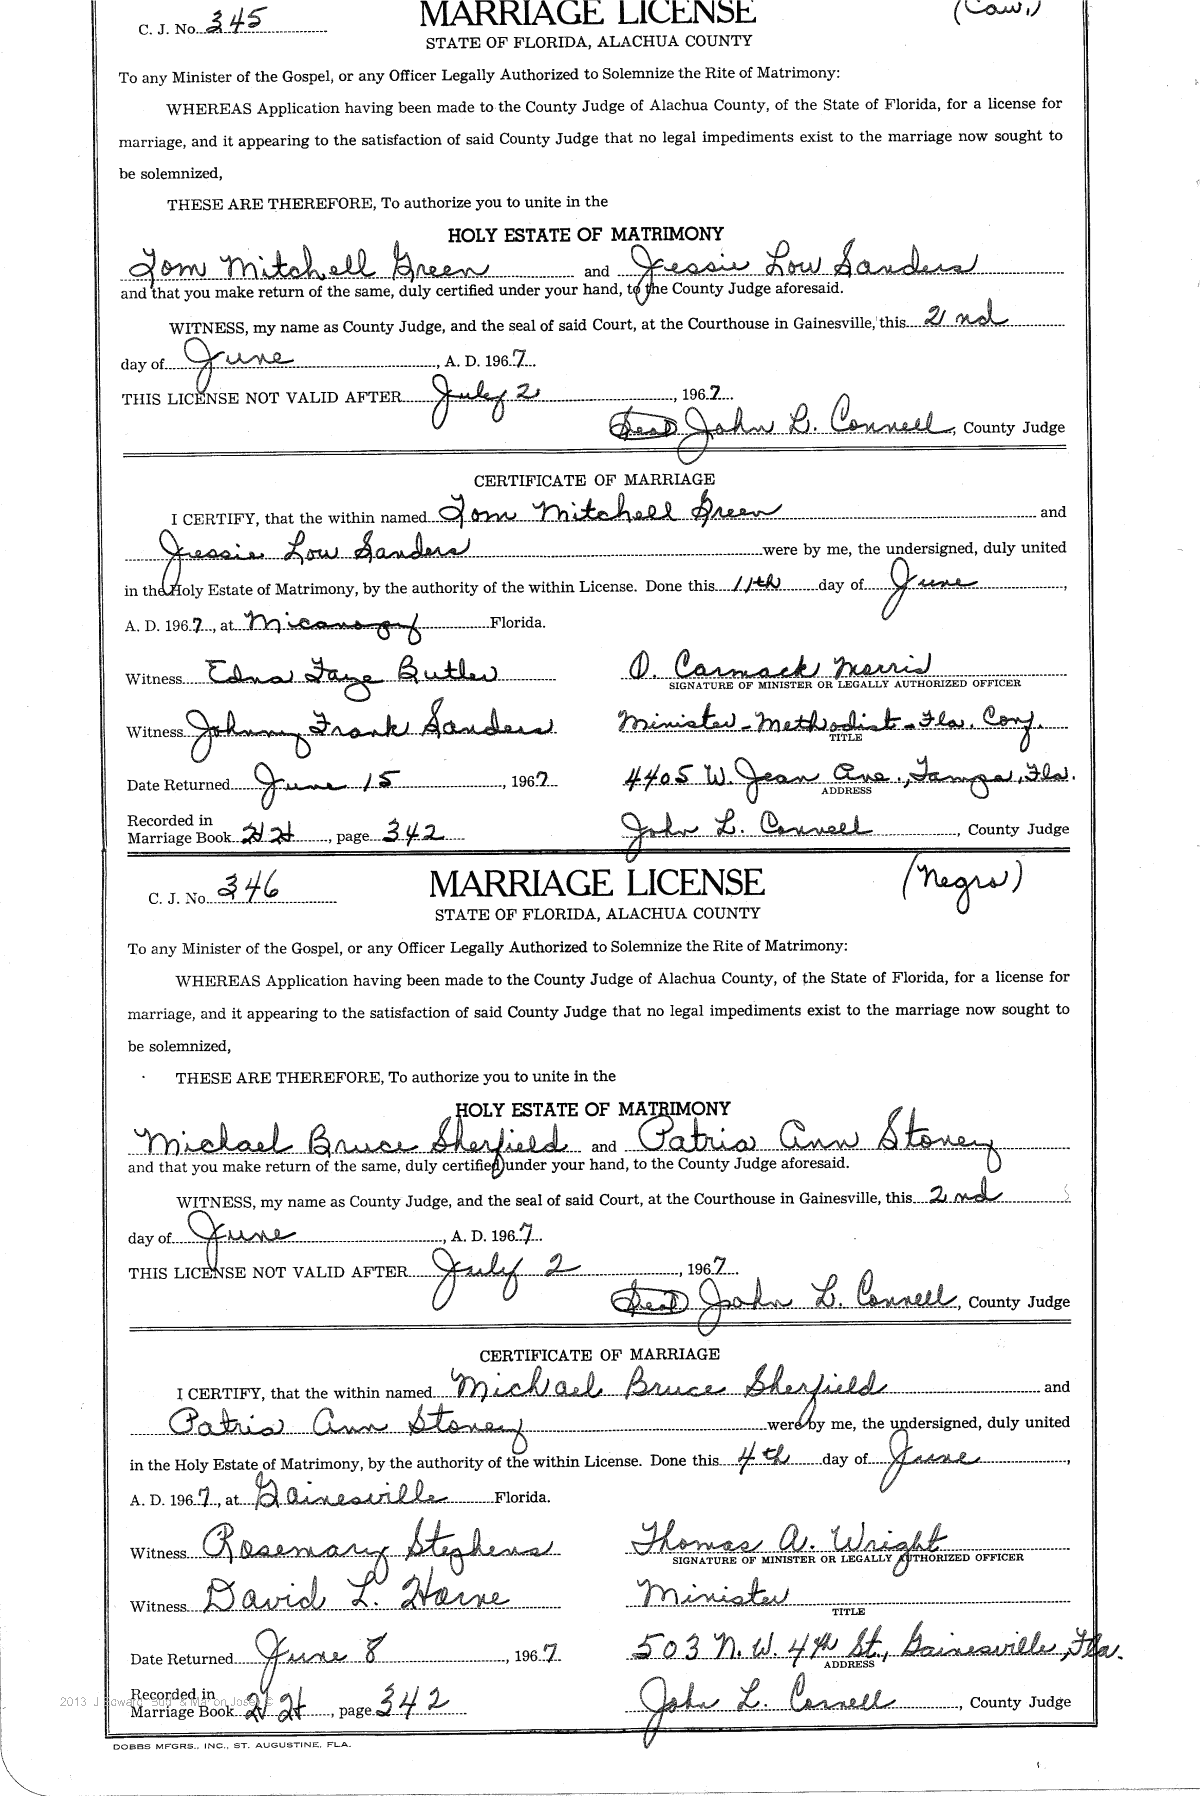 C. J. No. 345
MARRIAGE LICENSE
(Caw.)
STATE OF FLORIDA, ALACHUA COUNTY
To any Minister of the Gospel, or any Officer Legally Authorized to Solemnize the Rite of Matrimony:
WHEREAS Application having been made to the County Judge of Alachua County, of the State of Florida, for a license for
marriage, and it appearing to the satisfaction of said County Judge that no legal impediments exist to the marriage now sought to
be solemnized,
THESE ARE THEREFORE, To authorize you to unite in the
HOLY ESTATE OF MATRIMONY
Tom Mitchell Green and Jessie Low Sanders
and that you make return of the same, duly certified under your hand, to the County Judge aforesaid.
WITNESS, my name as County Judge, and the seal of said Court, at the Courthouse in Gainesville, this 2nd
day of June, A. D. 1967.
THIS LICENSE NOT VALID AFTER July 2, 1967
(Seal) John L. Connell, County Judge
CERTIFICATE OF MARRIAGE
I CERTIFY, that the within named Tom Mitchell Green and
Jessie Low Sanders were by me, the undersigned, duly united
in the Holy Estate of Matrimony, by the authority of the within License. Done this 11th day of June,
A. D. 1967, at Micanopy Florida.
Witness Edna Faye Butler
O. Carmack Morris
SIGNATURE OF MINISTER OR LEGALLY AUTHORIZED OFFICER
Witness Johnny Frank Sanders
Minister - Methodist - Fla. Conf.
TITLE
Date Returned June 15, 1967
4405 W. Jean Ave., Tampa, Fla.
ADDRESS
Recorded in
Marriage Book 24, page 342
John L. Connell, County Judge
C. J. No. 346
MARRIAGE LICENSE
(Negro)
STATE OF FLORIDA, ALACHUA COUNTY
To any Minister of the Gospel, or any Officer Legally Authorized to Solemnize the Rite of Matrimony:
WHEREAS Application having been made to the County Judge of Alachua County, of the State of Florida, for a license for
marriage, and it appearing to the satisfaction of said County Judge that no legal impediments exist to the marriage now sought to
be solemnized,
THESE ARE THEREFORE, To authorize you to unite in the
HOLY ESTATE OF MATRIMONY
Michael Bruce Sherfield and Patria Ann Stoney
and that you make return of the same, duly certified under your hand, to the County Judge aforesaid.
WITNESS, my name as County Judge, and the seal of said Court, at the Courthouse in Gainesville, this 2nd
day of June, A. D. 1967.
THIS LICENSE NOT VALID AFTER July 2, 1967
(Seal) John L. Connell, County Judge
CERTIFICATE OF MARRIAGE
I CERTIFY, that the within named Michael Bruce Sherfield and
Patria Ann Stoney were by me, the undersigned, duly united
in the Holy Estate of Matrimony, by the authority of the within License. Done this 4th day of June,
A. D. 1967, at Gainesville Florida.
Witness Rosemary Stephens
Thomas A. Wright
SIGNATURE OF MINISTER OR LEGALLY AUTHORIZED OFFICER
Witness David L. Horne
Minister
TITLE
Date Returned June 8, 1967
503 N. W. 4th St., Gainesville, Fla.
ADDRESS
Recorded in
Marriage Book 24, page 342
John L. Connell, County Judge
DOBBS MFGRS., INC., ST. AUGUSTINE, FLA.